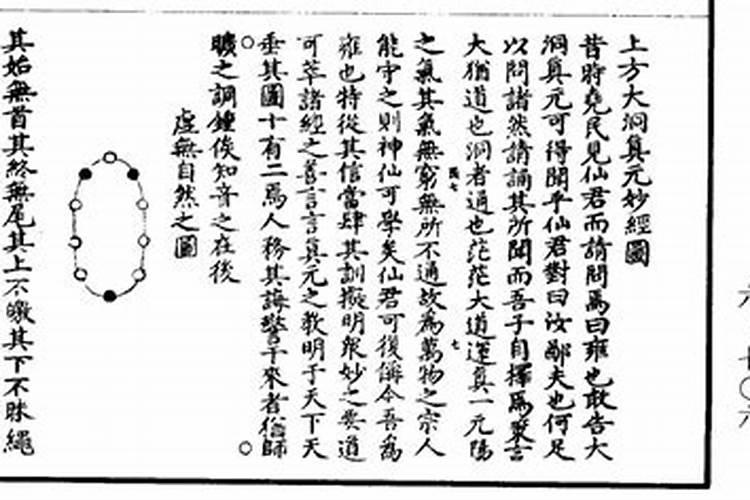 上方大洞真元妙經圖
昔時堯民見仙君而請問焉曰雍也敢告大
洞真元可得聞乎仙君對曰汝鄙夫也何足
以問諸然請誦其所聞而吾子自擇焉聚言
大猶道也洞者通也茫茫大道運真一元陽
之氣其氣無窮無所不通故為萬物之宗人
能守之則神仙可學矣仙君可復稱令吾為
雍也特從其信當肆其訓擬明眾妙之要道
可萃諸經之善言言真元之教明于天下天
垂其圖十有二焉人務其誨警于來者猶師
曠之調鐘俟知音之在後
虛無自然之圖
其始無首其終無尾其上不皦其下不昧繩